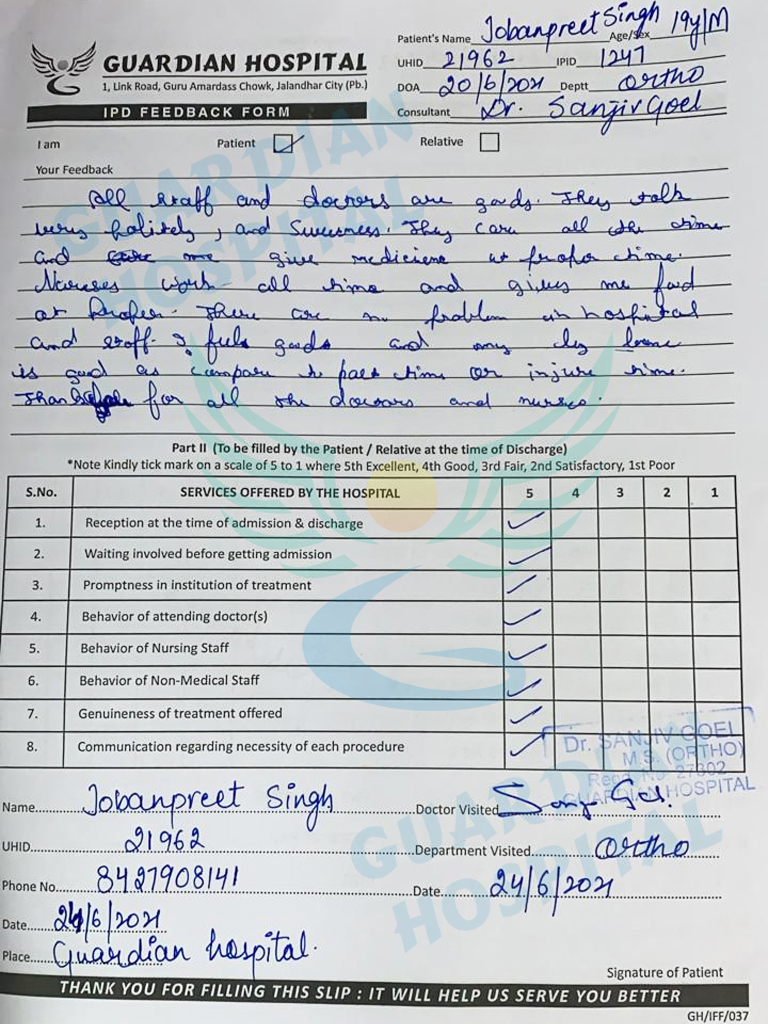 Patient's Name Jobanpreet Singh Age/Sex 19y/M
GUARDIAN HOSPITAL
UHID 21962 IPID 1247
1, Link Road, Guru Amardass Chowk, Jalandhar City (Pb.)
DOA 20/6/2021 Deptt Ortho
IPD FEEDBACK FORM
Consultant Dr. Sanjiv Goel
I am Patient Relative
Your Feedback
All staff and doctors are goods. They talk
very politely, and They care all the time
and give medicine at propor time.
Nurses work all time and gives me food
at Proper. There are no problem in hospital
and staff. I feels goods and my leg
is good as compare to past time or injure time.
for all the doctors and nurses.
Part II (To be filled by the Patient / Relative at the time of Discharge)
*Note Kindly tick mark on a scale of 5 to 1 where 5th Excellent, 4th Good, 3rd Fair, 2nd Satisfactory, 1st Poor
S.No. SERVICES OFFERED BY THE HOSPITAL 5 4 3 2 1
1. Reception at the time of admission & discharge
2. Waiting involved before getting admission
3. Promptness in institution of treatment
4. Behavior of attending doctor(s)
5. Behavior of Nursing Staff
6. Behavior of Non-Medical Staff
7. Genuineness of treatment offered
8. Communication regarding necessity of each procedure
Dr. SANJIV GOEL
M.S. (ORTHO)
Regd. No. 27302
GUARDIAN HOSPITAL
Name Jobanpreet Singh Doctor Visited Sanjiv Goel.
UHID 21962 Department Visited Ortho
Phone No. 8427908141 Date 24/6/2021
Date 24/6/2021
Place Guardian hospital.
Signature of Patient
THANK YOU FOR FILLING THIS SLIP : IT WILL HELP US SERVE YOU BETTER
GH/IFF/037
GUARDIAN HOSPITAL
GUARDIAN HOSPITAL